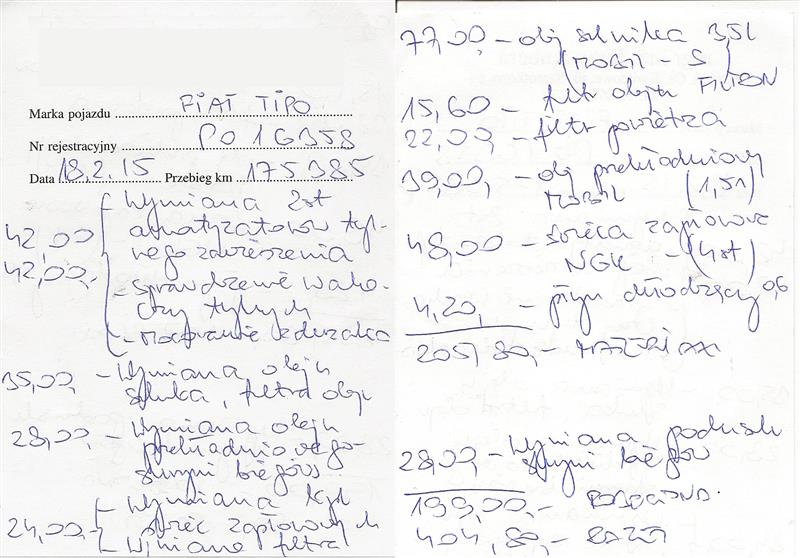 Marka pojazdu FIAT TIPO
Nr rejestracyjny PO 1G358
Data 18.2.15 Przebieg km 175385
- Wymiana 2st
42,00 amortyzatorów tyl-
nego zawieszenia
42,00,- - sprawdzenie waha-
czy tylnych
- mocowanie zderzaka
35,00,- Wymiana oleju
silnika, filtra olej
28,00,- Wymiana oleju
przekładniowego
skrzyni biegów
- Wymiana kpl
24,00,- świec zapłonowych
Wymiana filtra
77,00,- olej silnika 3,5L
(MOBIL - S)
15,60 - filtr oleju FILTRON
22,00,- filtr powietrza
39,00,- olej przekładniowy
MOBIL (1,5l)
48,00 - świeca zapłonowa
NGK - (4st)
4,20,- płyn chłodzący 0,6
205,80,- MATERIAŁ
28,00,- Wymiana poduszki
skrzyni biegów
199,00,- ROBOCIZNA
404,80,- RAZEM